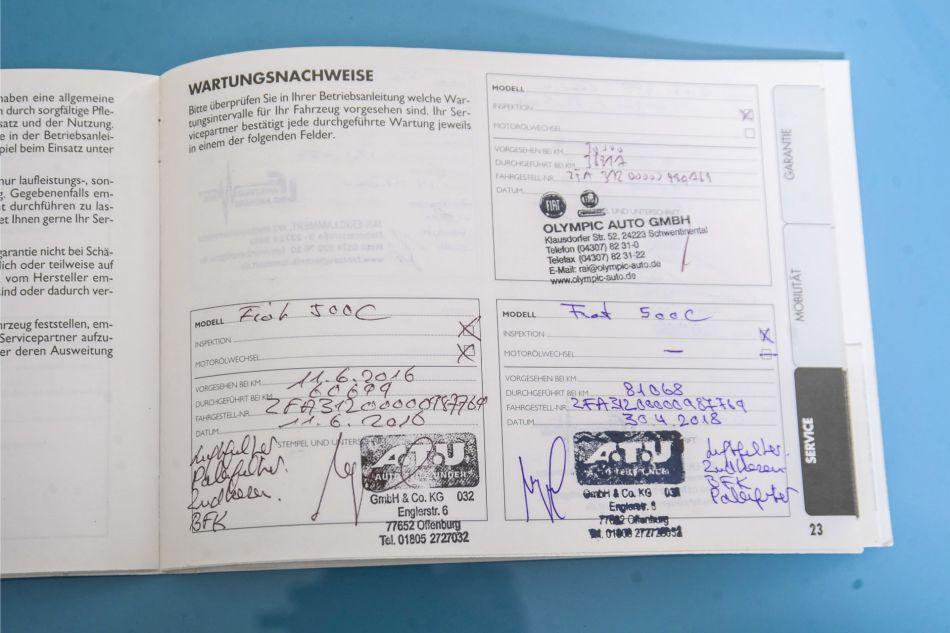 haben eine allgemeine
durch sorgfältige Pfle-
satz und der Nutzung.
e in der Betriebsanlei-
piel beim Einsatz unter
nur laufleistungs-, son-
g. Gegebenenfalls em-
t durchführen zu las-
et Ihnen gerne Ihr Ser-
garantie nicht bei Schä-
lich oder teilweise auf
vom Hersteller em-
sind oder dadurch ver-
rzeug feststellen, em-
Servicepartner aufzu-
er deren Ausweitung
WARTUNGSNACHWEISE
Bitte überprüfen Sie in Ihrer Betriebsanleitung welche War-
tungsintervalle für Ihr Fahrzeug vorgesehen sind. Ihr Ser-
vicepartner bestätigt jede durchgeführte Wartung jeweils
in einem der folgenden Felder.
MODELL
INSPEKTION X
MOTORÖLWECHSEL
VORGESEHEN BEI KM
DURCHGEFÜHRT BEI KM
FAHRGESTELL-NR.
DATUM
FIAT
UND UNTERSCHRIFT
OLYMPIC AUTO GMBH
Klausdorfer Str. 52, 24223 Schwentinental
Telefon (04307) 82 31-0
Telefax (04307) 82 31-22
E-Mail: rai@olympic-auto.de
www.olympic-auto.de
MODELL Fiat 500C
INSPEKTION X
MOTORÖLWECHSEL X
VORGESEHEN BEI KM 11.6.2016
DURCHGEFÜHRT BEI KM 60699
FAHRGESTELL-NR. ZFA3120000987769
DATUM 11.6.2016
STEMPEL UND UNTERSCHRIFT
Luftfilter
Pollenfilter
Zündkerzen
BFK
A.T.U
GmbH & Co. KG 032
Englerstr. 6
77652 Offenburg
Tel. 01805 2727032
MODELL Fiat 500C
INSPEKTION X
MOTORÖLWECHSEL —
VORGESEHEN BEI KM
DURCHGEFÜHRT BEI KM 81068
FAHRGESTELL-NR. ZFA3120000987769
DATUM 30.4.2018
A.T.U
GmbH & Co. KG
Englerstr. 6
77652 Offenburg
Luftfilter
Zündkerzen
BFK
Pollenfilter
GARANTIE
MOBILITÄT
SERVICE
23